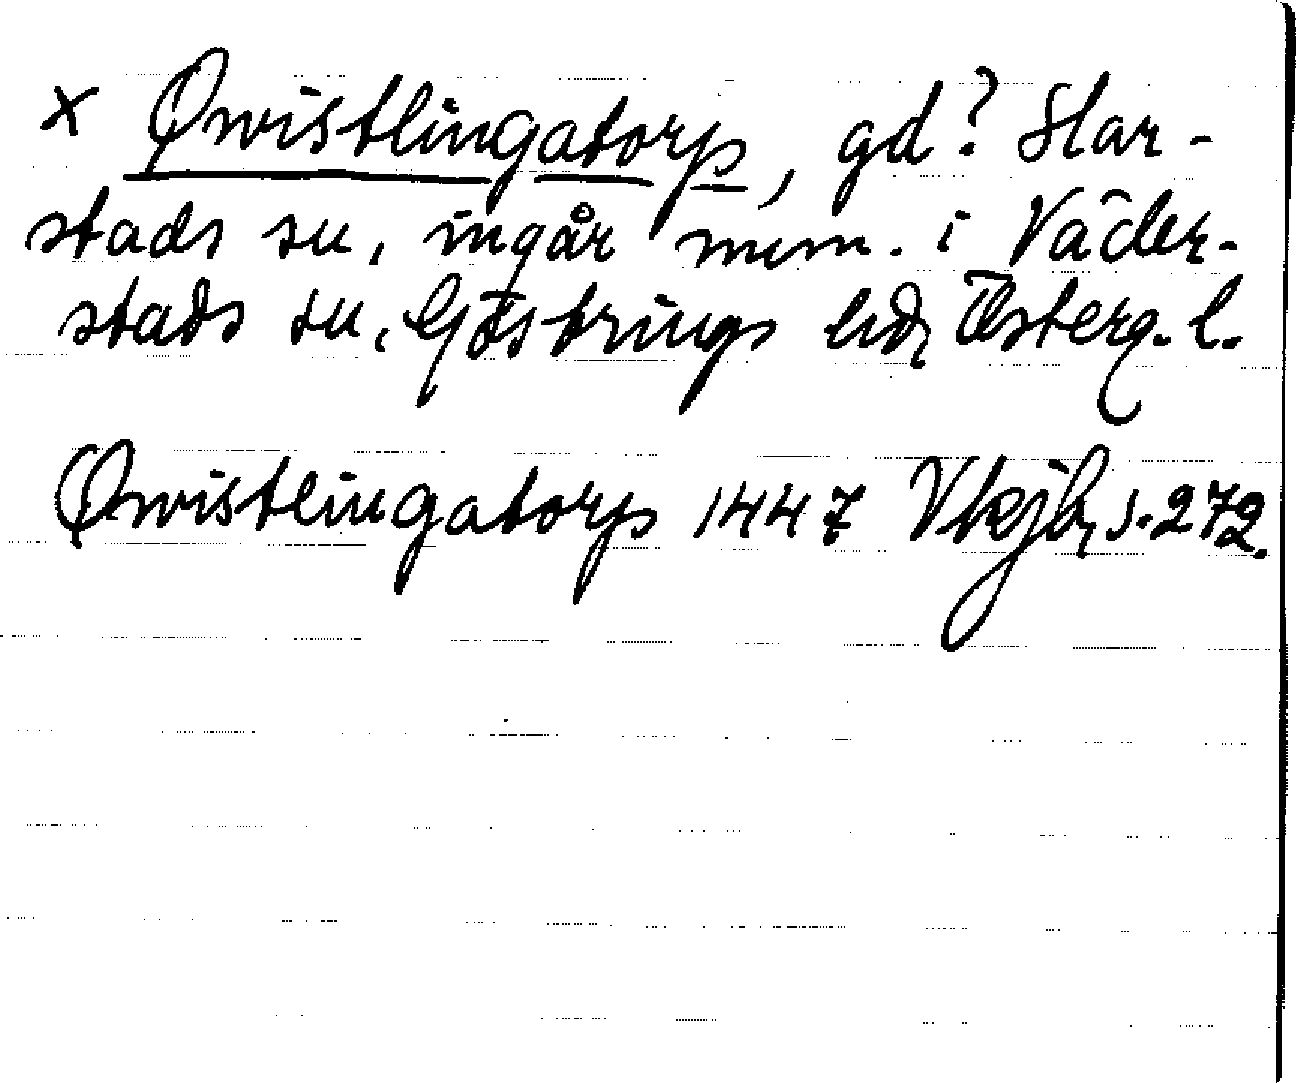 x Qwistlingatorp, gd? Har-
stads sn, ingår num. i Väder-
stads sn, Göstrings hd, Österg. l.
Qwistlingatorp 1447 Vkjb, s. 272.